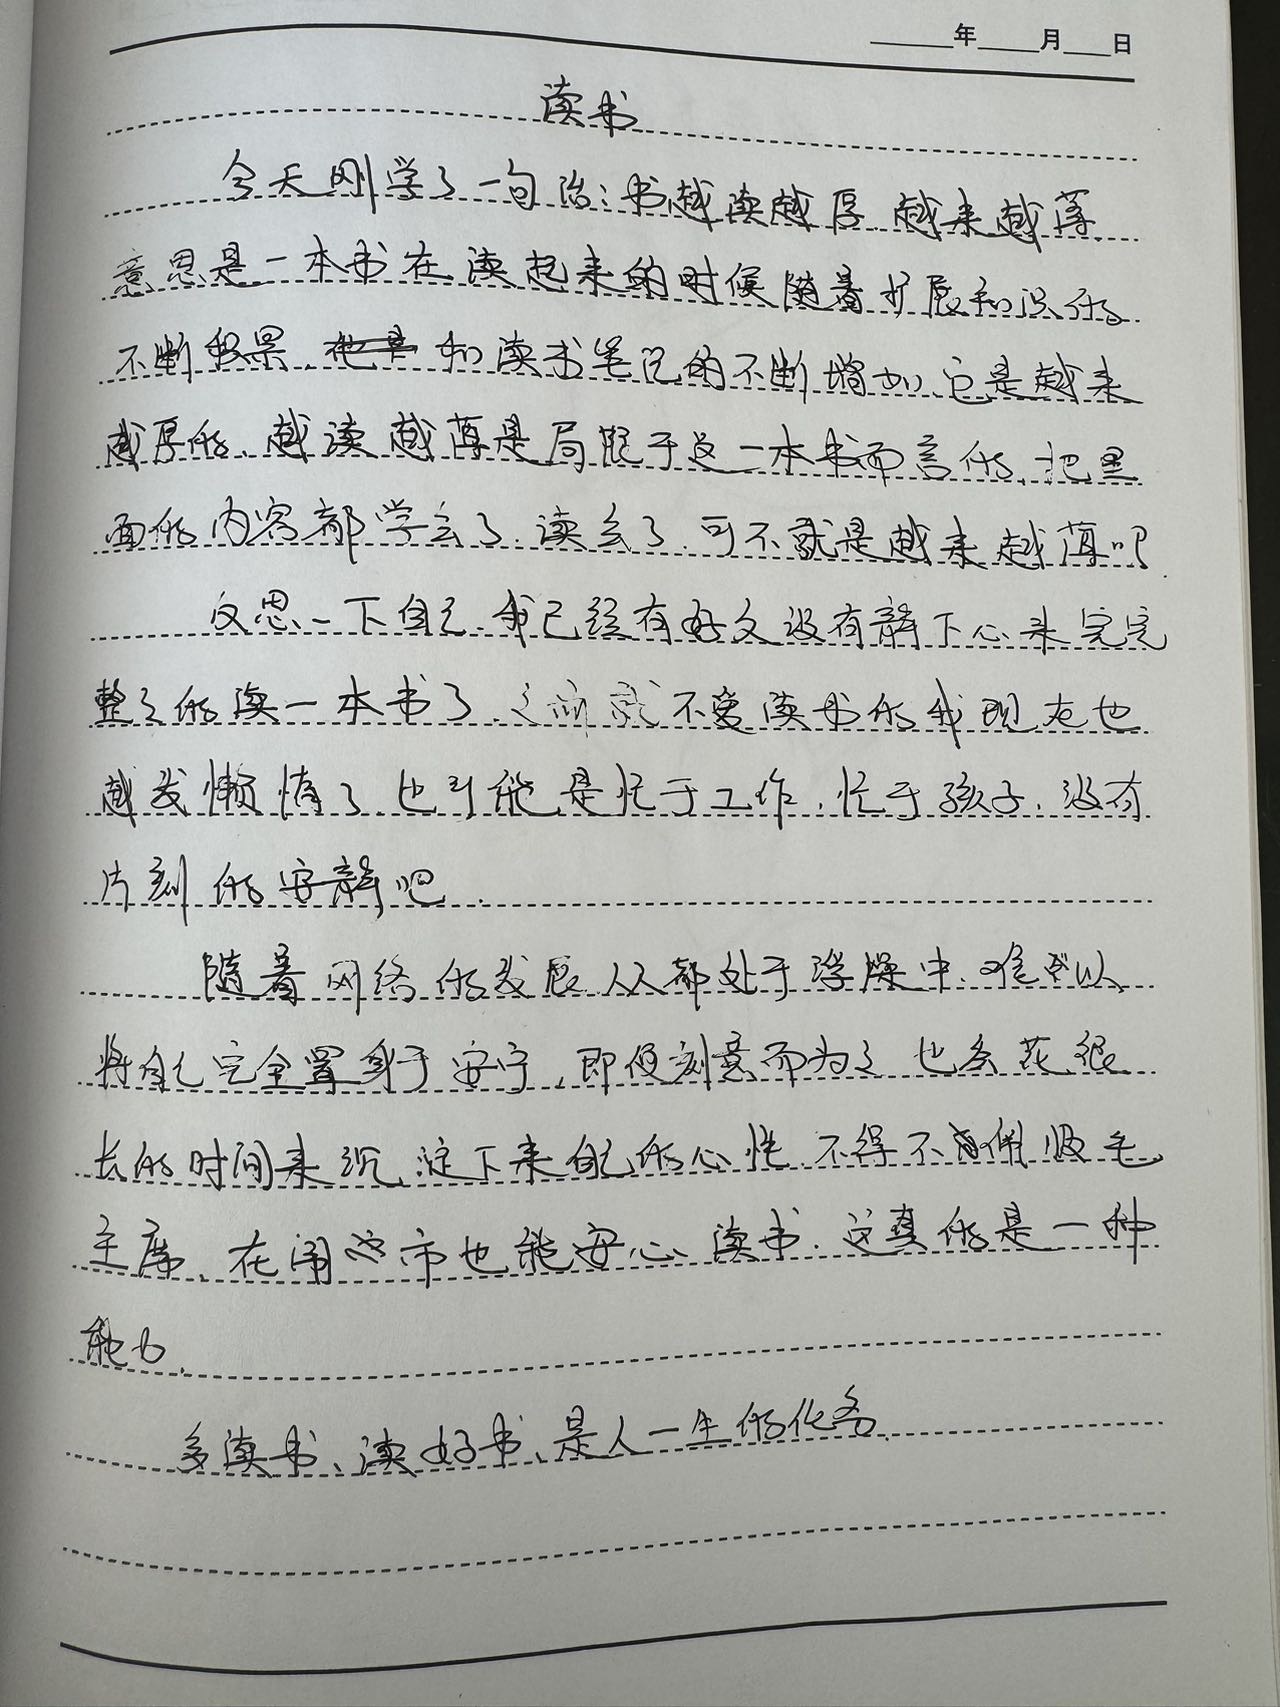 年 月 日
读书
今天刚学了一句话：书越读越厚，越来越薄，
意思是一本书在读起来的时候随着扩展知识的
不断积累，和读书笔记的不断增加，它是越来
越厚的，越读越薄是局限于这一本书而言的，把里
面的内容都学会了，读会了，可不就是越来越薄吧
反思一下自己，我已经有好久没有静下心来完完
整整的读一本书了，之前就不爱读书的我现在也
越发懒惰了，也可能是忙于工作，忙于孩子，没有
片刻的安静吧
随着网络的发展，人人都处于浮燥中，难以
将自己完全置身于安宁，即使刻意而为之也会花很
长的时间来沉淀下来自己的心性，不得不佩服毛
主席，在闹市也能安心读书，这真的是一种
能力，
多读书、读好书、是人一生的任务，